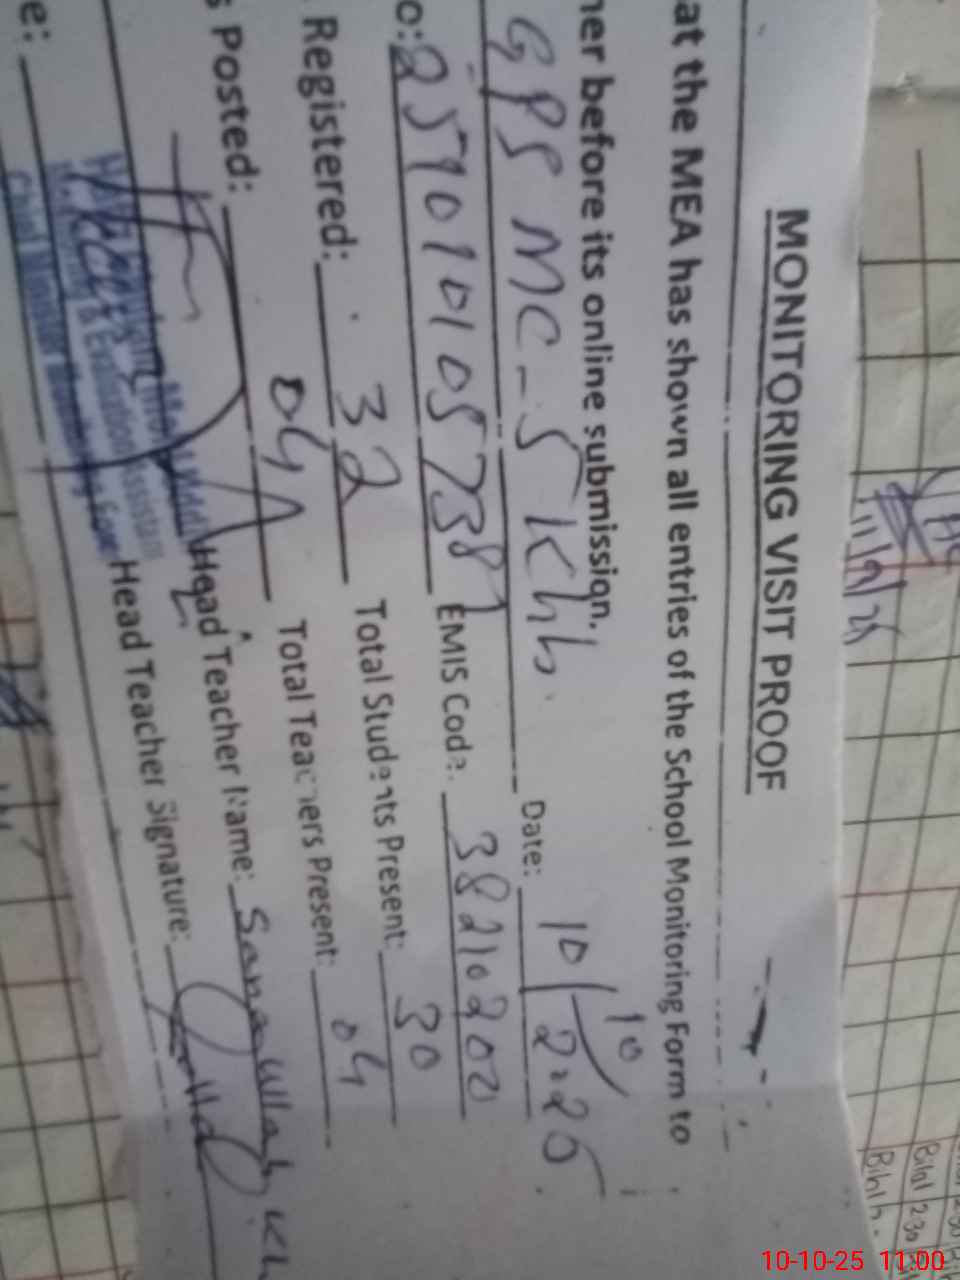 MONITORING VISIT PROOF
at the MEA has shown all entries of the School Monitoring Form to
her before its online submission.
GPS MC-5 Khh. Date: 10/10/2025
o: EMIS Code: 38210202
Registered: 32 Total Students Present: 30
s Posted: 04 Total Teachers Present: 04
Head Teacher Name: Sanaullah Kh
e: Head Teacher Signature:
Monitoring & Evaluation Assistant
Chief Minister Monitoring
11/9/25
Bilal 230
10-10-25 11:00